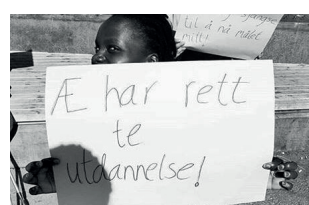 til å nå målet
mitt!
Æ har rett
te
utdannelse!